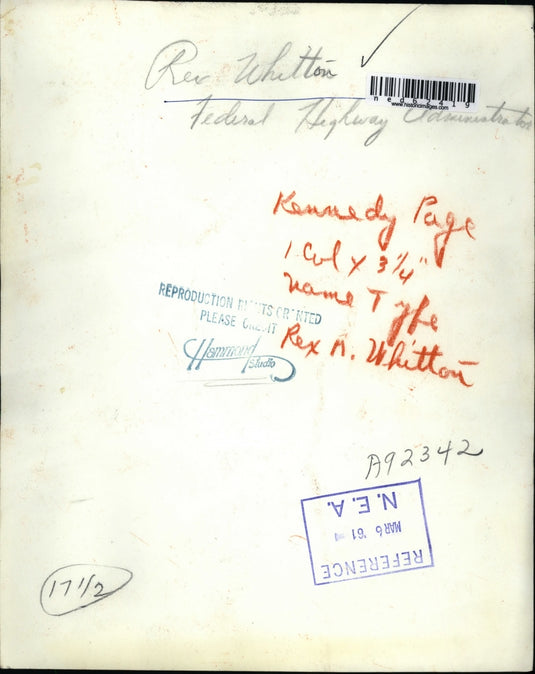 Rex Whitton
ned62419
www.historicimages.com
Federal Highway Administrator
Kennedy Page
1 Col x 3 1/4"
name Type
Rex M. Whitton
REPRODUCTION RIGHTS GRANTED
PLEASE CREDIT
Hammond
Studio
A92342
REFERENCE
MAR 6 '61
N.E.A.
17 1/2